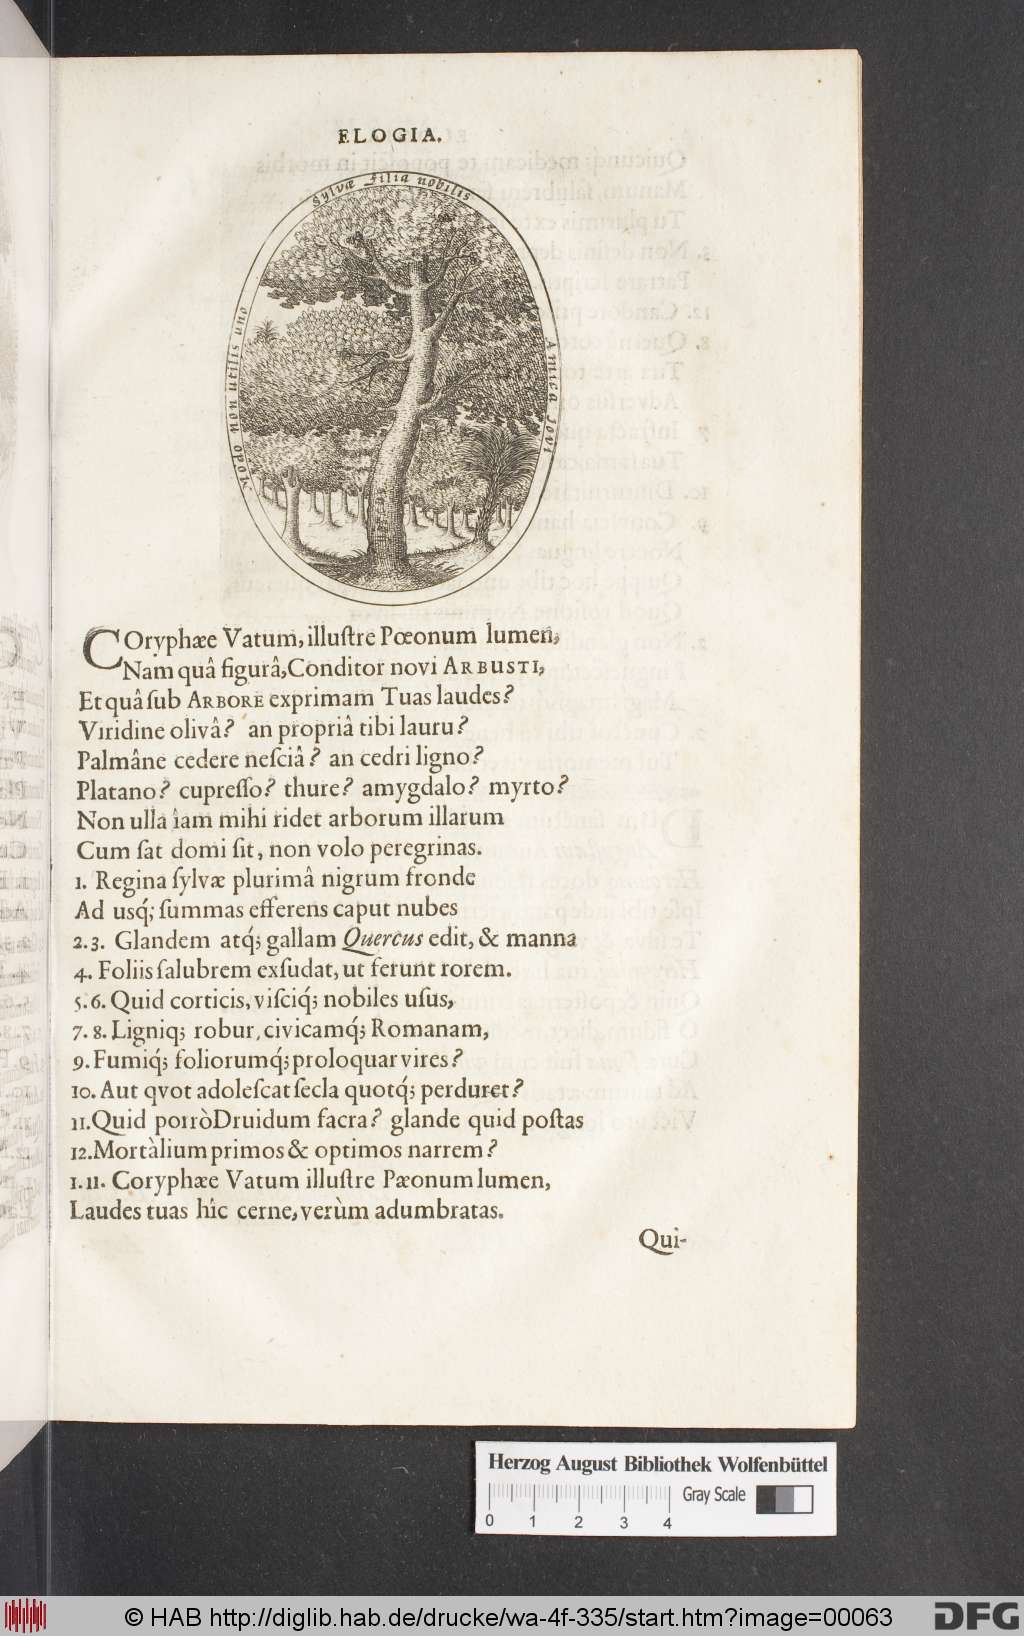 ELOGIA.
Sylvæ filia nobilis
Modo non utilis uno
Amica Jovi
COryphæe Vatum, illuſtre Pœonum lumen,
Nam quâ figurâ, Conditor novi ARBUSTI,
Et quâ ſub ARBORE exprimam Tuas laudes?
Viridine olivâ? an propriâ tibi lauru?
Palmâne cedere neſciâ? an cedri ligno?
Platano? cupreſſo? thure? amygdalo? myrto?
Non ulla iam mihi ridet arborum illarum
Cum ſat domi ſit, non volo peregrinas.
1. Regina ſylvæ plurimâ nigrum fronde
Ad usq́; ſummas efferens caput nubes
2.3. Glandem atq́; gallam Quercus edit, & manna
4. Foliis ſalubrem exſudat, ut ferunt rorem.
5.6. Quid corticis, viſciq́; nobiles uſus,
7. 8. Ligniq; robur, civicamq́; Romanam,
9. Fumiq́; foliorumq́; proloquar vires?
10. Aut qvot adoleſcat ſecla quotq́; perduret?
11. Quid porrò Druidum ſacra? glande quid poſtas
12. Mortàlium primos & optimos narrem?
1.11. Coryphæe Vatum illuſtre Pæonum lumen,
Laudes tuas hîc cerne, verùm adumbratas.
Qui-
Herzog August Bibliothek Wolfenbüttel
Gray Scale
0 1 2 3 4
© HAB http://diglib.hab.de/drucke/wa-4f-335/start.htm?image=00063
DFG